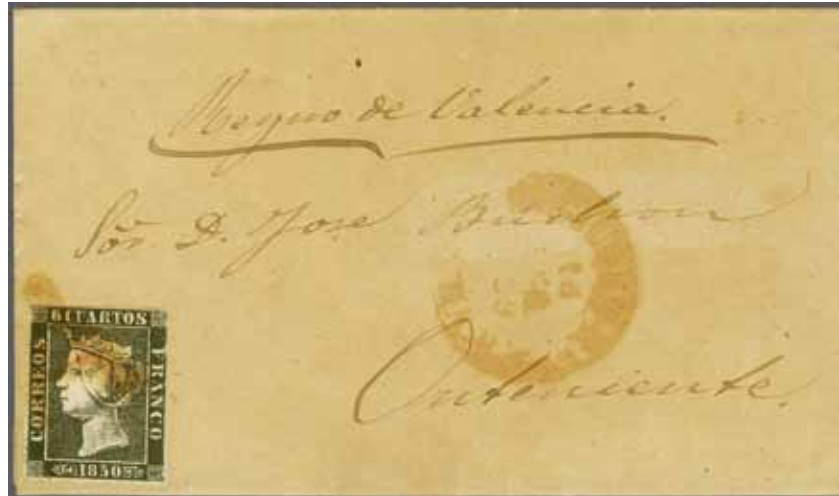 Reyno de Valencia.
Sor. D. Jose
Onteniente.
6 CUARTOS
CORREOS
FRANCO
1850